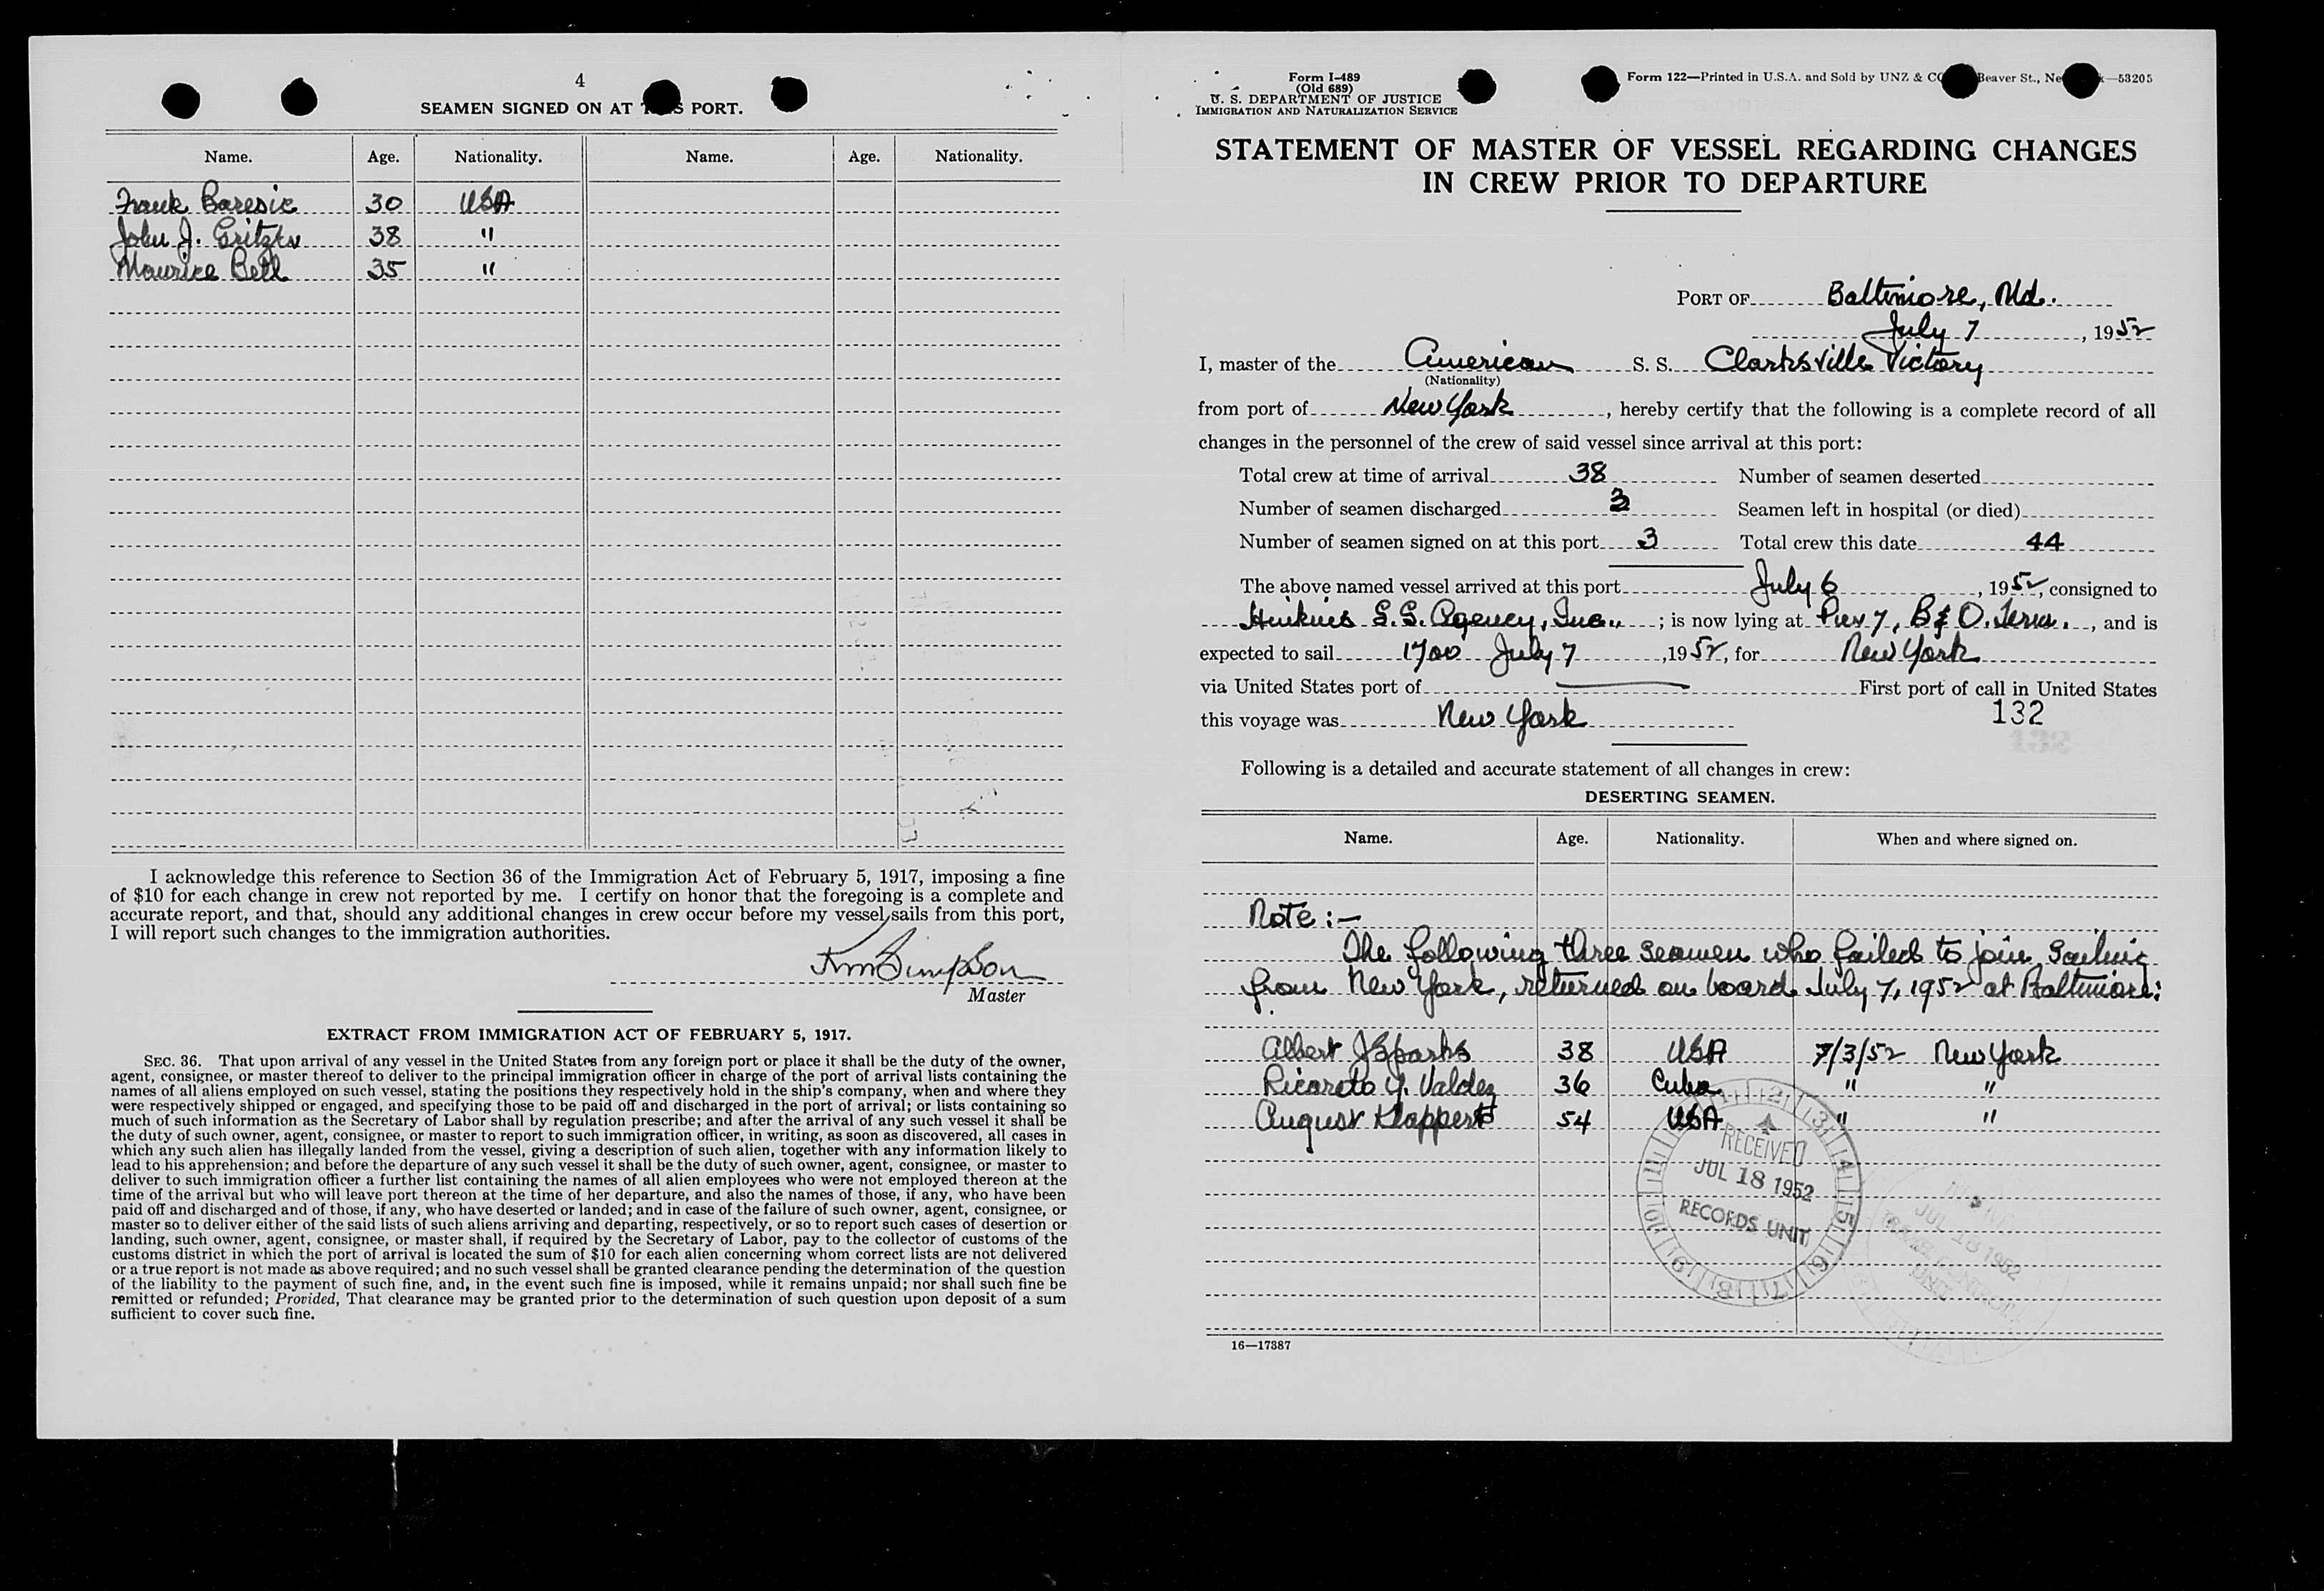 4
SEAMEN SIGNED ON AT PORT.
Name. Age. Nationality. Name. Age. Nationality.
Frank Baresic 30 USA
John J. 38 "
Maurice Bell 35 "
I acknowledge this reference to Section 36 of the Immigration Act of February 5, 1917, imposing a fine
of $10 for each change in crew not reported by me. I certify on honor that the foregoing is a complete and
accurate report, and that, should any additional changes in crew occur before my vessel sails from this port,
I will report such changes to the immigration authorities.
Simpson
Master
EXTRACT FROM IMMIGRATION ACT OF FEBRUARY 5, 1917.
SEC. 36. That upon arrival of any vessel in the United States from any foreign port or place it shall be the duty of the owner,
agent, consignee, or master thereof to deliver to the principal immigration officer in charge of the port of arrival lists containing the
names of all aliens employed on such vessel, stating the positions they respectively hold in the ship's company, when and where they
were respectively shipped or engaged, and specifying those to be paid off and discharged in the port of arrival; or lists containing so
much of such information as the Secretary of Labor shall by regulation prescribe; and after the arrival of any such vessel it shall be
the duty of such owner, agent, consignee, or master to report to such immigration officer, in writing, as soon as discovered, all cases in
which any such alien has illegally landed from the vessel, giving a description of such alien, together with any information likely to
lead to his apprehension; and before the departure of any such vessel it shall be the duty of such owner, agent, consignee, or master to
deliver to such immigration officer a further list containing the names of all alien employees who were not employed thereon at the
time of the arrival but who will leave port thereon at the time of her departure, and also the names of those, if any, who have been
paid off and discharged and of those, if any, who have deserted or landed; and in case of the failure of such owner, agent, consignee, or
master so to deliver either of the said lists of such aliens arriving and departing, respectively, or so to report such cases of desertion or
landing, such owner, agent, consignee, or master shall, if required by the Secretary of Labor, pay to the collector of customs of the
customs district in which the port of arrival is located the sum of $10 for each alien concerning whom correct lists are not delivered
or a true report is not made as above required; and no such vessel shall be granted clearance pending the determination of the question
of the liability to the payment of such fine, and, in the event such fine is imposed, while it remains unpaid; nor shall such fine be
remitted or refunded; Provided, That clearance may be granted prior to the determination of such question upon deposit of a sum
sufficient to cover such fine.
Form I-489
(Old 689)
U. S. DEPARTMENT OF JUSTICE
IMMIGRATION AND NATURALIZATION SERVICE
Form 122—Printed in U.S.A. and Sold by UNZ & Beaver St., —53205
STATEMENT OF MASTER OF VESSEL REGARDING CHANGES
IN CREW PRIOR TO DEPARTURE
PORT OF Baltimore, Md.
July 7, 1952
I, master of the American S. S. Clarksville Victory
(Nationality)
from port of New York, hereby certify that the following is a complete record of all
changes in the personnel of the crew of said vessel since arrival at this port:
Total crew at time of arrival 38 Number of seamen deserted
Number of seamen discharged 3 Seamen left in hospital (or died)
Number of seamen signed on at this port 3 Total crew this date 44
The above named vessel arrived at this port July 6, 1952, consigned to
S.S. Agency, Inc., ; is now lying at Pier 7, B & O. Term., and is
expected to sail 1700 July 7, 1952, for New York
via United States port of First port of call in United States
this voyage was New York
132
Following is a detailed and accurate statement of all changes in crew:
DESERTING SEAMEN.
Name. Age. Nationality. When and where signed on.
Note:-
The following three seamen who failed to join sailing
from New York, returned on board July 7, 1952 at Baltimore:
Albert J Sparks 38 USA 7/3/52 New York
Ricardo Y. Valdez 36 Cuba " "
August Klappert 54 USA " "
RECEIVED
JUL 18 1952
RECORDS UNIT
JUL 18 1952
UNIT
16—17387